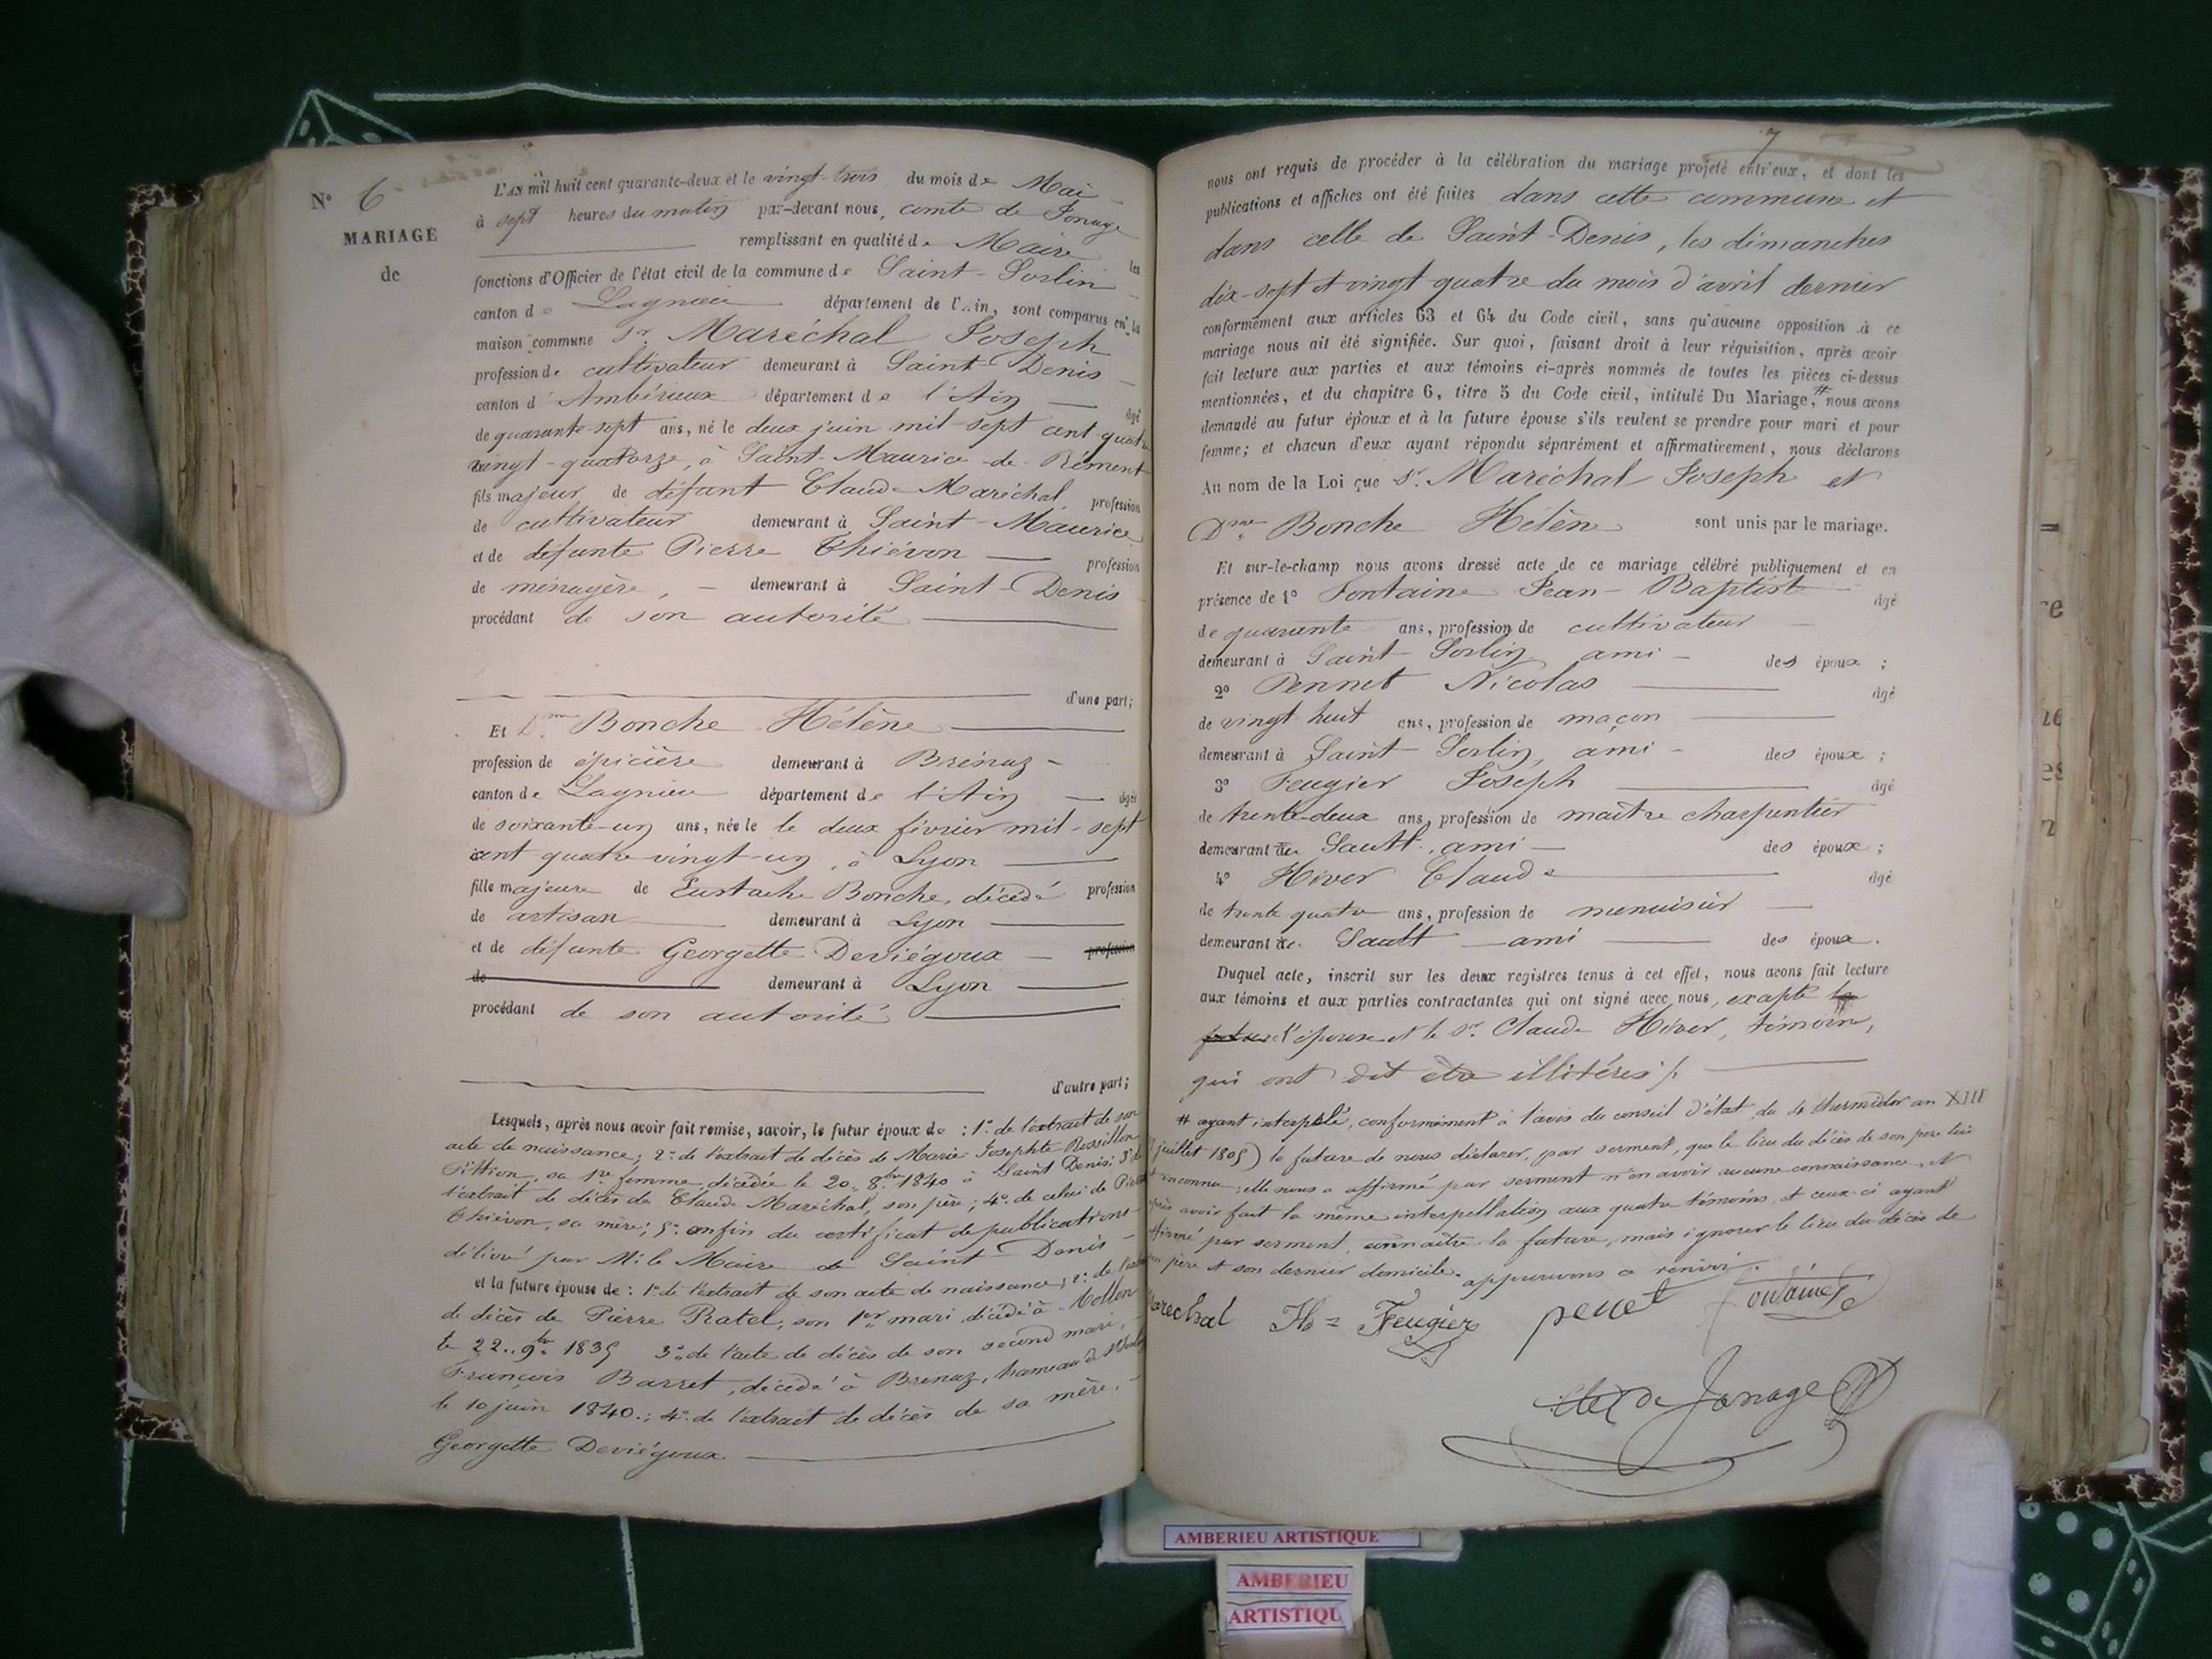 N° 6
MARIAGE
de
L'AN mil huit cent quarante-deux et le vingt-trois du mois de Mai
à sept heures du matin par-devant nous, comte de Jonage
remplissant en qualité de Maire les
fonctions d'Officier de l'état civil de la commune de Saint-Sorlin
canton de Lagnieu département de l'Ain, sont comparus en la
maison commune Sr. Maréchal Joseph
profession de cultivateur demeurant à Saint-Denis
canton d'Ambérieux département de l'Ain âgé
de quarante-sept ans, né le deux juin mil sept cent quatre
vingt-quatorze, à Saint-Maurice-de-Rément
fils majeur de défunt Claude Maréchal profession
de cultivateur demeurant à Saint-Maurice
et de défunte Pierre Thiévon profession
de ménagère, demeurant à Saint-Denis
procédant de son autorité
d'une part;
Et Dme Bonche Hélène
profession de épicière demeurant à Brénaz
canton de Lagnieu département de l'Ain âgée
de soixante-un ans, née le le deux février mil-sept
cent quatre-vingt-un, à Lyon
fille majeure de Eustache Bonche, décédé profession
de artisan demeurant à Lyon
et de défunte Georgette Deviégoux profession
de demeurant à Lyon
procédant de son autorité
d'autre part;
Lesquels, après nous avoir fait remise, savoir, le futur époux de : 1° de l'extrait de son
acte de naissance; 2° de l'extrait de décès de Marie Josephte Rossillon
Pittion, sa 1re femme, décédée le 20 8bre 1840 à Saint Denis; 3° de
l'extrait de décès de Claude Maréchal, son père; 4° de celui de Pierre
Thiévon, sa mère; 5° enfin du certificat de publications
délivré par M. le Maire de Saint-Denis
et la future épouse de : 1° de l'extrait de son acte de naissance; 2° de l'acte
de décès de Pierre Ratel, son 1er mari, décédé à Mollon
le 22 9bre 1835 3° de l'acte de décès de son second mari,
François Barret, décédé à Brénaz, hameau de
le 10 juin 1840.; 4° de l'extrait de décès de sa mère,
Georgette Deviégoux
7
nous ont requis de procéder à la célébration du mariage projeté entr'eux, et dont les
publications et affiches ont été faites dans cette commune et
dans celle de Saint-Denis, les dimanches
dix-sept et vingt quatre du mois d'avril dernier
conformément aux articles 63 et 64 du Code civil, sans qu'aucune opposition à ce
mariage nous ait été signifiée. Sur quoi, faisant droit à leur réquisition, après avoir
fait lecture aux parties et aux témoins ci-après nommés de toutes les pièces ci-dessus
mentionnées, et du chapitre 6, titre 5 du Code civil, intitulé Du Mariage, # nous avons
demandé au futur époux et à la future épouse s'ils veulent se prendre pour mari et pour
femme; et chacun d'eux ayant répondu séparément et affirmativement, nous déclarons
Au nom de la Loi que Sr. Maréchal Joseph et
Dme Bonche Hélène sont unis par le mariage.
Et sur-le-champ nous avons dressé acte de ce mariage célébré publiquement et en
présence de 1° Fontaine Jean-Baptiste âgé
de quarante ans, profession de cultivateur
demeurant à Saint Sorlin ami des époux ;
2° Pennet Nicolas âgé
de vingt huit ans, profession de maçon
demeurant à Saint Sorlin, ami des époux ;
3° Feugier Joseph âgé
de trente-deux ans, profession de maître charpentier
demeurant au Sault, ami des époux ;
4° Hiver Claude âgé
de trente quatre ans, profession de menuisier
demeurant au Sault ami des époux.
Duquel acte, inscrit sur les deux registres tenus à cet effet, nous avons fait lecture
aux témoins et aux parties contractantes qui ont signé avec nous, excepté la
future l'épouse et le Sr. Claude Hiver, témoin,
qui ont dit être illitérés
# ayant interpelé, conformément à l'avis du conseil d'état du 4 thermidor an XIII
juillet 1805) la future de nous déclarer, par serment, que le lieu du décès de son père lui
inconnu; elle nous a affirmé par serment n'en avoir aucune connaissance, et
après avoir fait la même interpellation aux quatre témoins, et ceux-ci ayant
affirmé par serment, connaître la future, mais ignorer le lieu du décès de
son père et son dernier domicile. approuvons ce renvoi.
Marechal Feugier penet fontaine
de Jonage
AMBERIEU ARTISTIQUE
AMBERIEU
ARTISTIQU